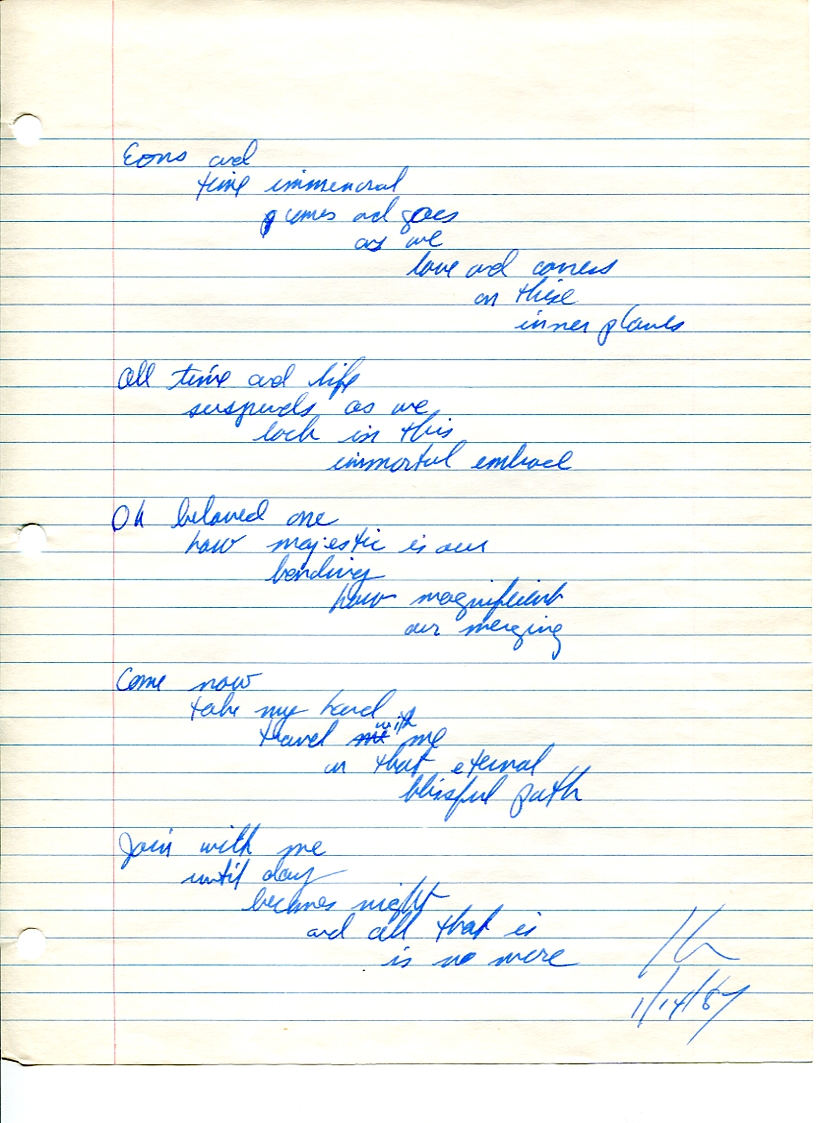 Eons and
time immemoral
comes and goes
as we
love and caress
on these
inner planes
All time and life
suspends as we
lock in this
immortal embrace
Oh beloved one
how majestic is our
bonding
how magnificent
our merging
Come now
take my hand
travel with me
on that eternal
blissful path
Join with me
until day
becomes night
and all that is
is no more
1/14/87